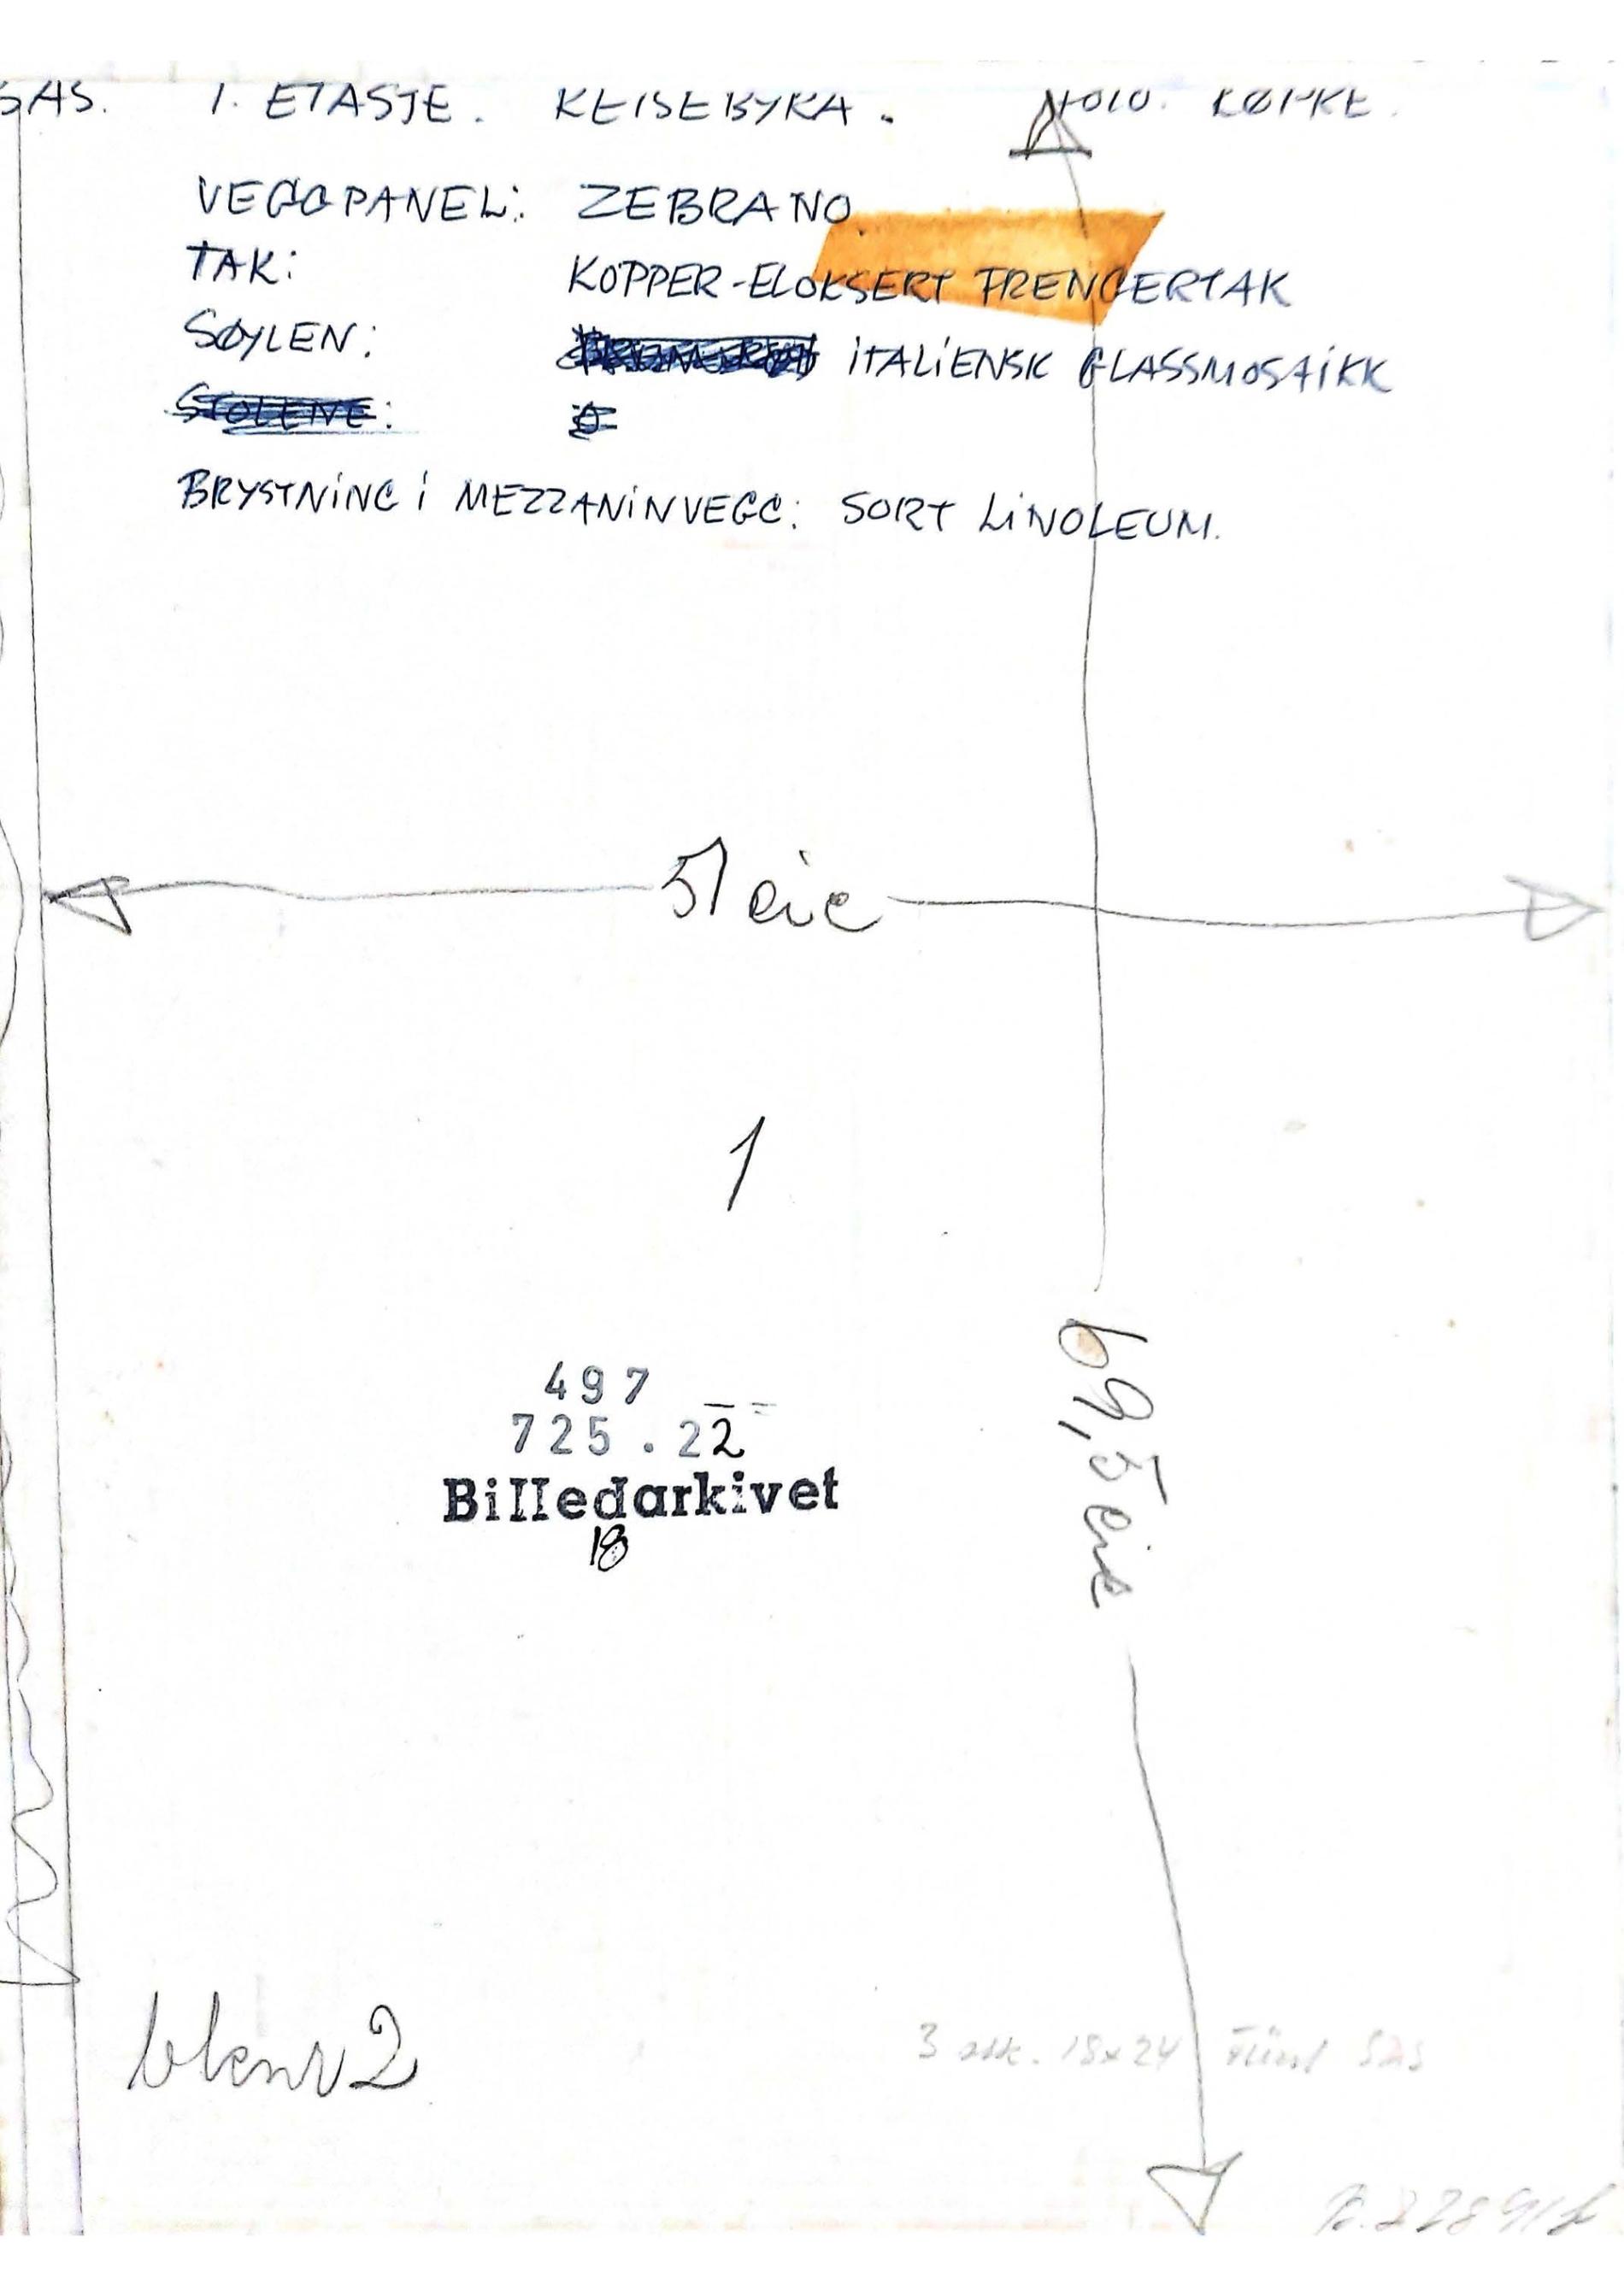 SAS. 1. ETASJE. REISEBYRÅ. FOTO. RØPKE.
VEGGPANEL: ZEBRANO.
TAK: KOPPER-ELOKSERT TRENGERTAK
SØYLEN: ITALIENSK GLASSMOSAIKK
STOLENE:
BRYSTNING i MEZZANINVEGG: SORT LINOLEUM.
51 cic
1
69,5 cic
497
725.22
Billedarkivet
18
3 stk. 18x24 SAS